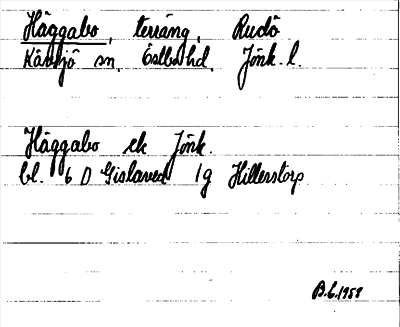 Häggabo, terräng, Rudö
Kävsjö sn, Östbo hd, Jönk. l.
Häggabo ek Jönk.
bl. 6 D Gislaved 1g Hillerstorp
B.G. 1958